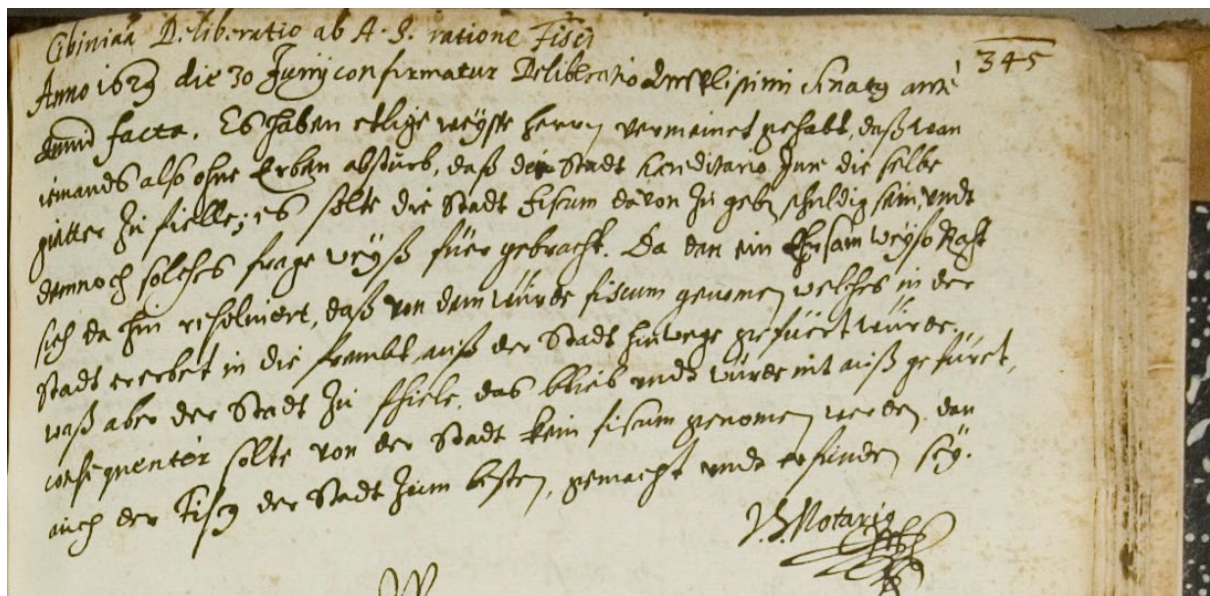 Cibiniaca Deliberatio ab A. S. ratione Fisci
345
Anno 1629 die 30 Junij confirmatur Deliberatio Amplissimi Senatus ante
facta. Es haben etlige weyse herrn vermeinet gehabt, daß wan
iemands also ohne Erben absturb, daß der Stadt haereditario Jure die selbe
gütter zu fielle; es solte die Stadt fiscum davon zu geben schuldig sein, undt
demnoch solches frage weyß für gebracht. Da dan ein Ehrsam Weyso Raht
sich da hin resolviert, daß von dem würde fiscum genomen welches in der
Stadt ererbet in die frembt auß der Stadt hinwege gefüert würde.
waß aber der Stadt zu fhiele, das blieb undt würde nit auß gefüret,
consequenter solte von der Stadt kein fiscum genomen werden, dan
auch der Fiscus der Stadt zum besten, gemacht undt erfunden sey.
J. S. Notarius